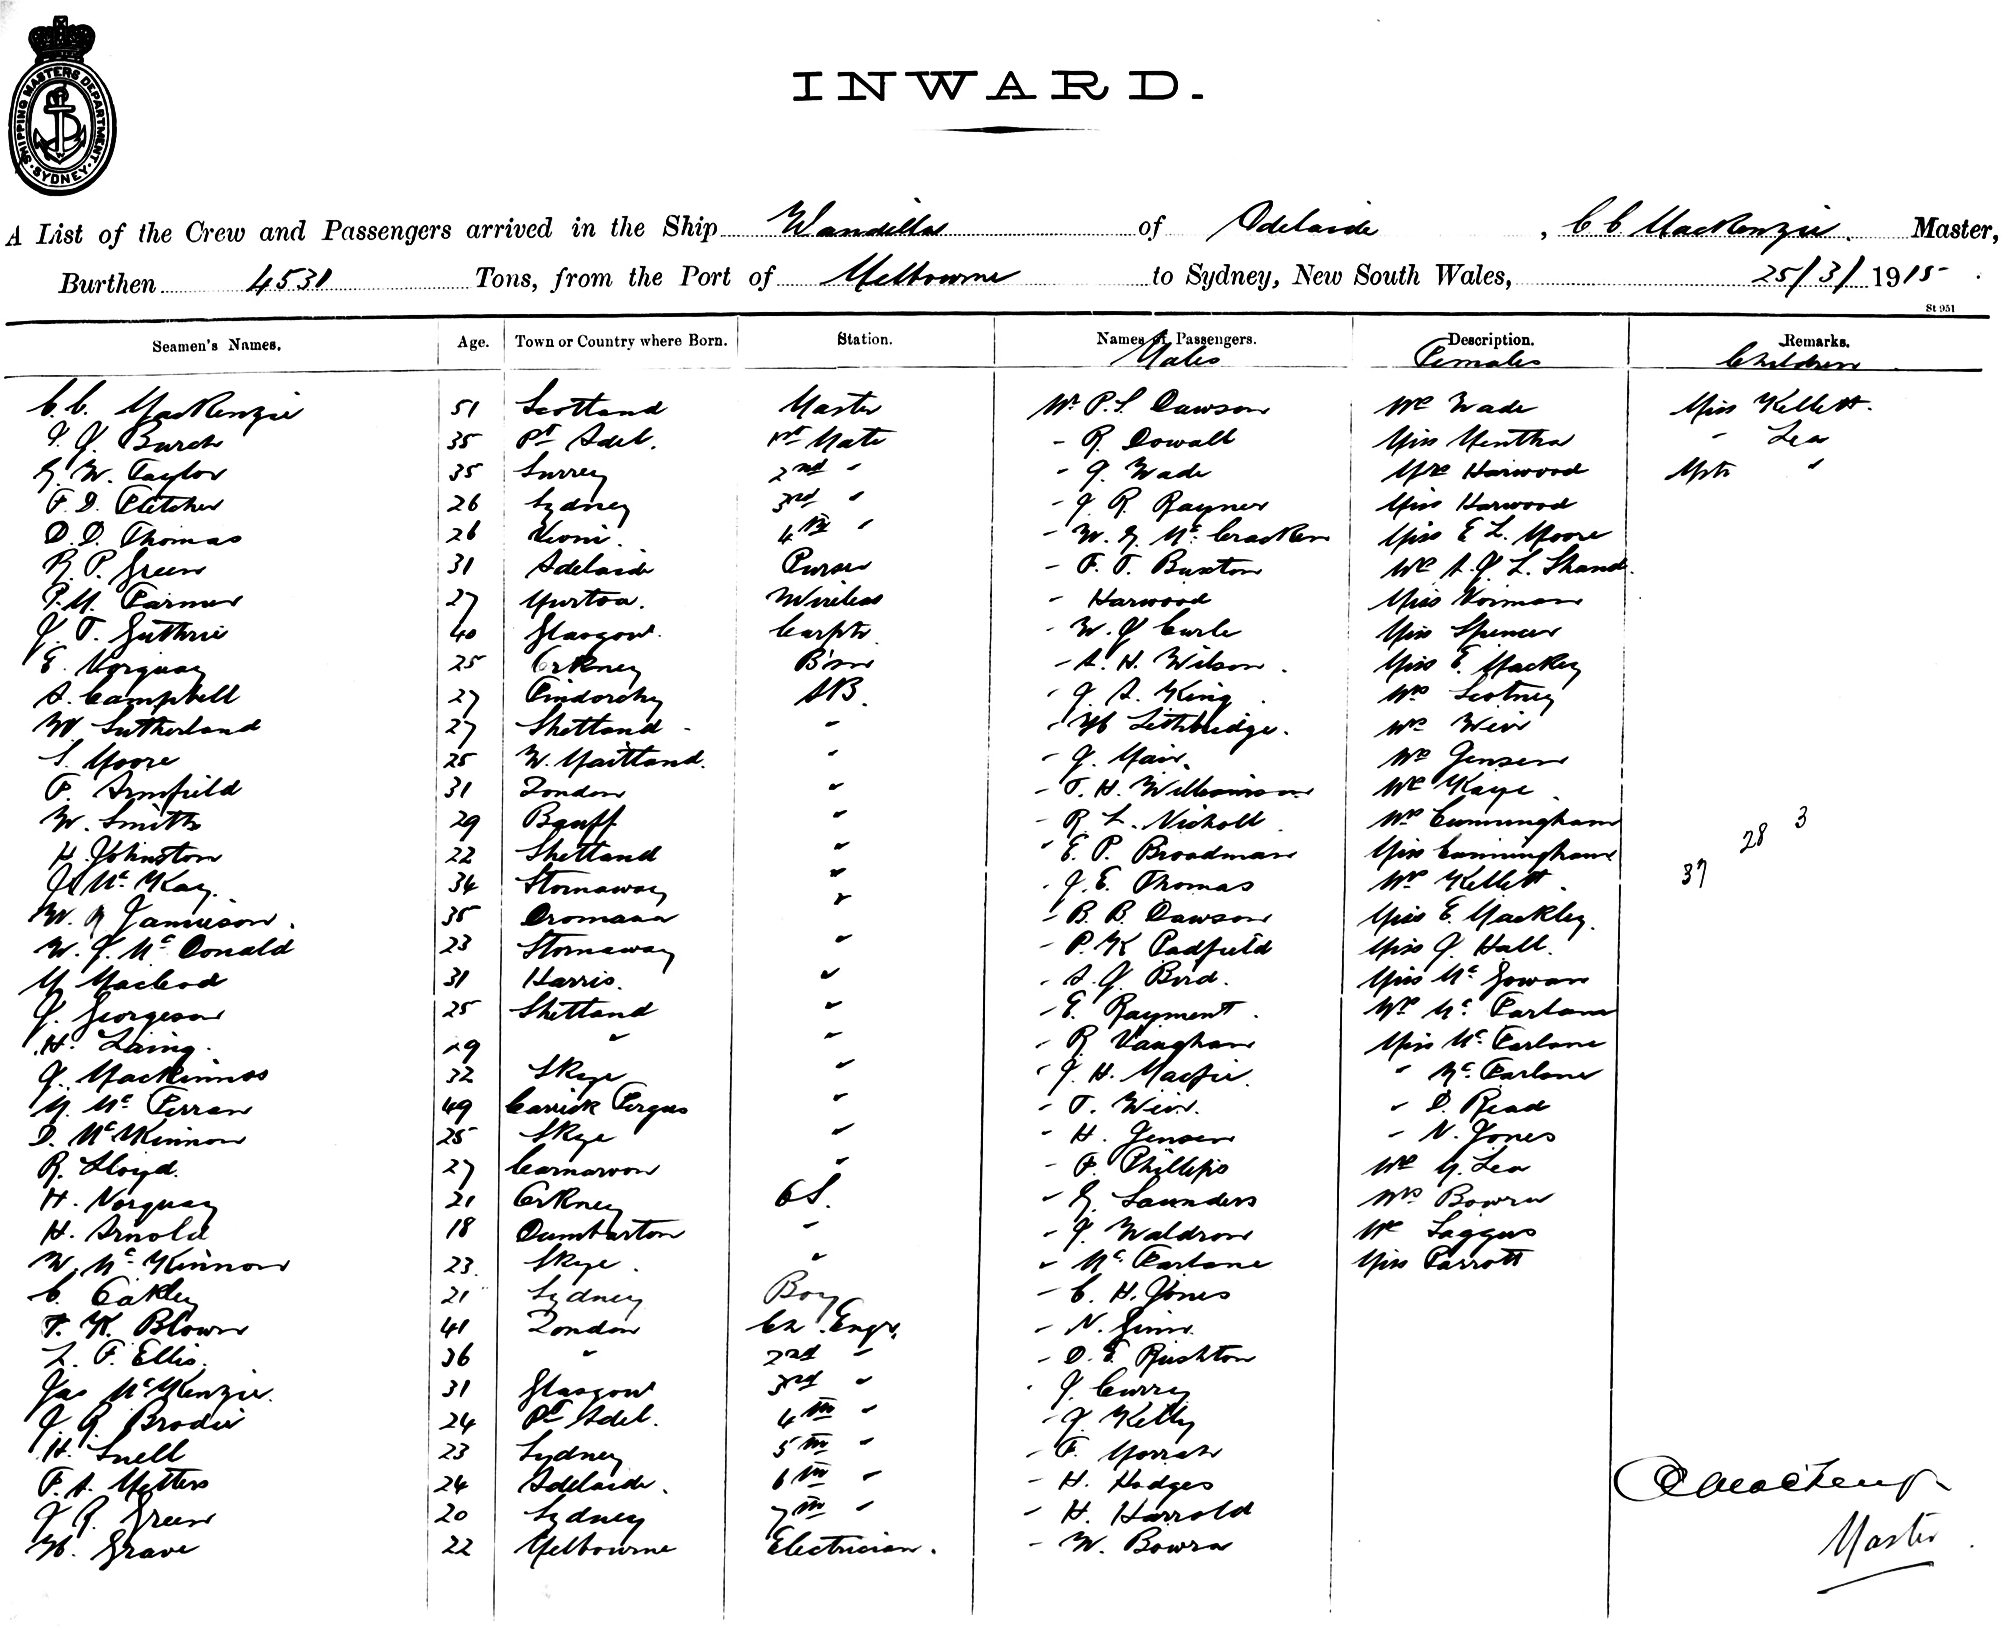 SHIPPING MASTERS DEPARTMENT
SYDNEY
INWARD.
A List of the Crew and Passengers arrived in the Ship Wandilla of Adelaide, C C MacKenzie. Master,
Burthen 4531 Tons, from the Port of Melbourne to Sydney, New South Wales, 25/3/1915
St 951
Seamen's Names. Age. Town or Country where Born. Station. Names of Passengers. Description. Remarks.
Males Females Children
C. C. MacKenzie 51 Scotland Master Mr P. S. Dawson Mrs Wade Miss Kellett.
J. J. Burch 35 Pt Adel. 1st Mate - R. Dowall Miss Mentha " Lea
G. W. Taylor 35 Surrey 2nd " - J. Wade Mrs Harwood Mstr "
F. D. Fletcher 26 Sydney 3rd " - J. R. Rayner Miss Harwood
D. D. Thomas 26 4th " - W. G. Mc Cracken Miss E L. Moore
R. P. Green 31 Adelaide Purser - F. T. Buxton Mrs A. J. L. Shand.
P. M. Farmer 27 Murtoa. Wireless - Harwood Miss Norman
J. T. Guthrie 40 Glasgow. Carptr - W. J Curle Miss Spencer
E. Norquay 25 Orkney B'sn - A. H. Wilson. Miss E. Mackey
A. Campbell 27 Findorchy AB. - J. A. King. Mrs Scotney
W. Sutherland 27 Shetland " - Lethbridge. Mrs Weir
S. Moore 25 W. Maitland. " - J. Mair. Mrs Jensen
F. Armfield 31 London " - T. H. Williamson Mrs Kaye
W. Smith 29 Banff " - R. L. Nicholl Mrs Cunningham
H. Johnston 22 Shetland " - E. P. Broadman Miss Cunningham 28 3
J. Mc Kay. 34 Stornaway " - J. E. Thomas Mrs Kellett. 37
W. R Jamieson. 35 Dromara " - B. B. Dawson Miss E. Mackley.
W. J. Mc Donald 23 Stornaway " - P. K Padfield Miss J. Hall.
M Macleod 31 Harris. " - A. J. Bird. Miss Mc Gowan
J. Georgeson 25 Shetland " - E. Rayment. Mrs Mc Farlane
H. Laing. 29 " " - R Vaughan Miss Mc Farlane
J. MacKinnos 32 Skye " - J. H. Macfie. " Mc Farlane
M. Mc Ferran 49 Carrick Fergus " - T. Weir. " D. Read
D. McKinnon 25 Skye " - H. Jensen " N. Jones
R. Lloyd. 27 Carnarvon " - F. Phillips Mrs M. Lea
H. Norquay 21 Orkney OS. - G. Saunders Mrs Bowra
H. Arnold 18 Dumbarton " - J. Waldron Mrs Saggus
W. McKinnon 23. Skye. " - Mc Farlane Miss Parrott
C. Oakley 21 Sydney Boy - C. H. Jones
F. K. Blown 41 London Ch. Engr. - N. Ginn.
L. F. Ellis. 36 " 2nd " - D. E. Rushton
Jas McKenzie. 31 Glasgow 3rd " - J. Curry
J. R. Brodie 24 Pt Adel. 4th " - J. Kelly
H. Snell 23 Sydney 5th " - F.
F. A. Metters 24 Adelaide. 6th " - H. Hodges
J R. Green 20 Sydney 7th " - H. Harrold
Grave 22 Melbourne Electrician. - W. Bowra
Master